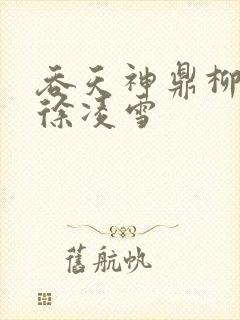 吞天神鼎柳
徐凌雪
舊航帆